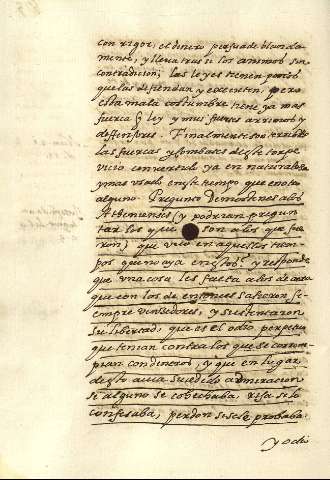 con rigor; el dinero persuade blanda
mente, y lleva tras si los animos sin
contradicion; las leyes tienen pocos
que las defiendan y executen, pero
esta mala costumbre tiene ya mas
fuerça q̃ ley y mui fuertes arrimos y
deffensores. Finalmente son terribles
las fuerças y combates deste torpe
vicio convertido ya en naturaleza
y mas usado en este tiempo que en otro
alguno. Pregunto Demostenes a los
Athenienses (y podrian pregun
tar los que son a los que fue
ron) que vio en aquellos tiem
pos que no aya en estos? y responde
que una cosa les faelta a los de aora
que con los de entonces salieron si
empre vencedores, y sustentaron
su libertad, que es el odio perpetuo
que tenian contra los que se corrom
pian con dineros, y que en lugar
desto avia sucedido admiracion
si alguno se cohechaba, risa si lo
confesaba, perdon si se le probaba,
y odio